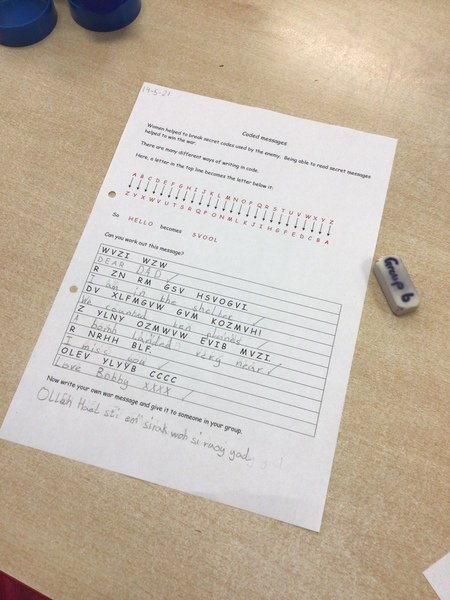 19-5-21
Coded messages
Women helped to break secret codes used by the enemy. Being able to read secret messages
helped to win the war.
There are many different ways of writing in code.
Here, a letter in the top line becomes the letter below it:
A B C D E F G H I J K L M N O P Q R S T U V W X Y Z
Z Y X W V U T S R Q P O N M L K J I H G F E D C B A
So HELLO becomes SVOOL
Can you work out this message?
WVZI WZW
DEAR DAD
R ZN RM GSV HSVOGVI.
I am in the shelter
DV XLFMGVW GVM KOZMVH!
We counted ten planes
Z YLNY OZMWVW EVIB MVZI.
A bomb landed very near
R NRHH BLF.
I miss you
OLEV YLYYB CCCC
Love Bobby XXXX
Now write your own war message and give it to someone in your group.
OLLah Haet sti em sirak woh si raoy yad
Group 6